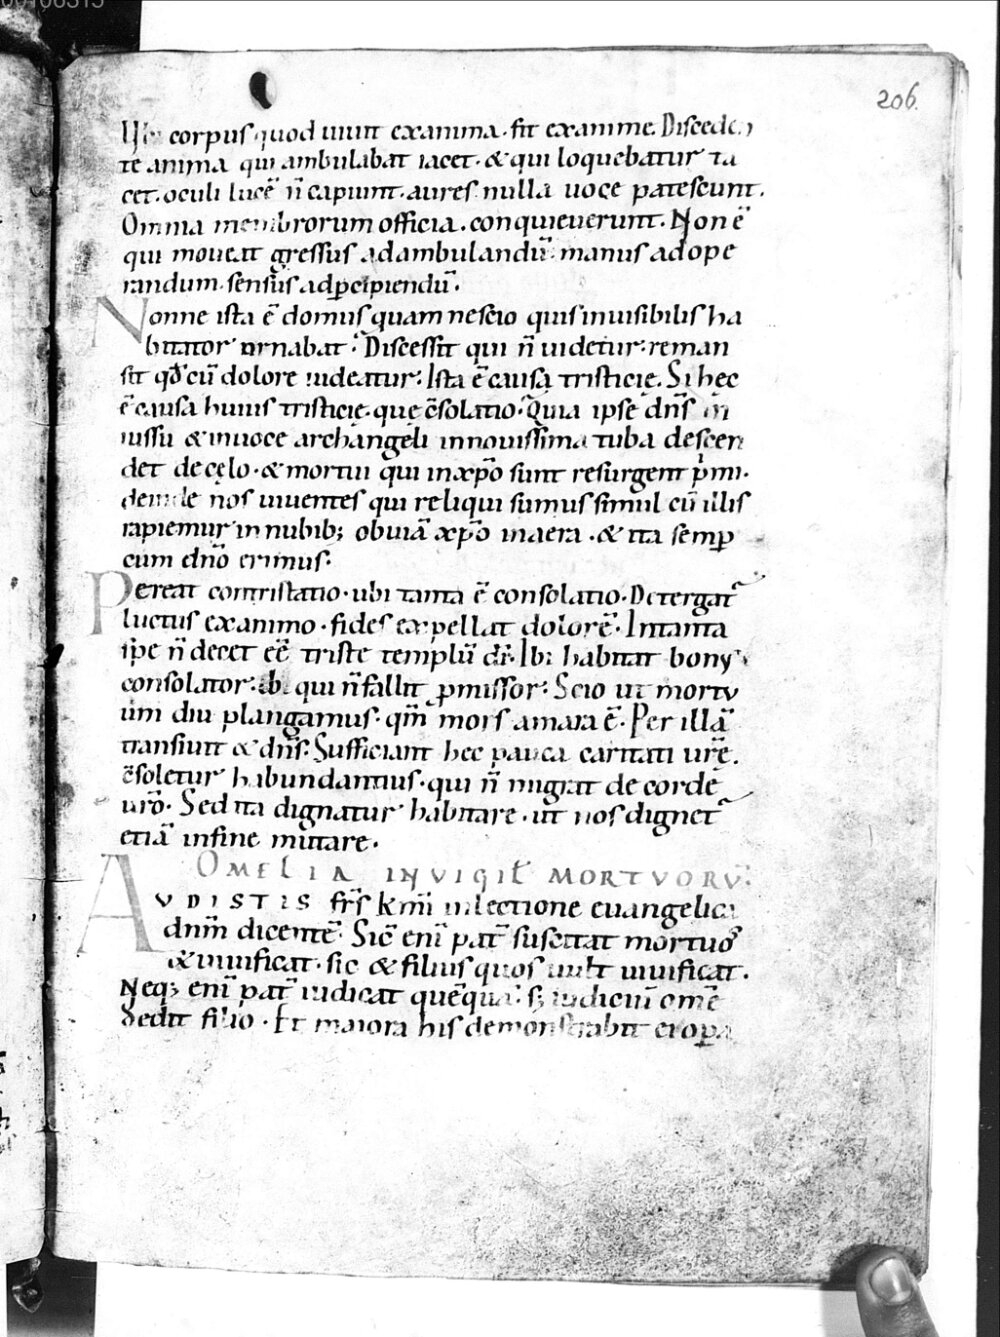 206.
corpus quod uiuit ex anima. fit exanime. Disceden
te anima qui ambulabat iacet. & qui loquebatur ta
cet. oculi lucē n̄ capiunt. aures nulla uoce patescunt.
Omnia membrorum officia. conquieuerunt. Non ē
qui moueat gressus ad ambulandū. manus ad ope
randum. sensus ad p̄cipiendū.
Nonne ista ē domus quam nescio quis inuisibilis ha
bitator ornabat. Discessit qui n̄ uidetur. reman
sit qđ cū dolore uideatur. Ista ē causa tristicię. Si hec
ē causa huius tristicię. que c̄solatio. Quia ipse dn̄s in
iussu & in uoce archangeli in nouissima tuba descen
det de cęlo. & mortui qui in xp̄o sunt resurgent p̄mi.
deinde nos uiuentes qui reliqui sumus simul cū illis
rapiemur in nubib; obuiā xp̄o in aera. & ita semꝑ
cum dn̄o erimus.
Pereat contristatio. ubi tanta ē consolatio. Detergat̄
luctus ex animo. fides expellat dolorē. In tanta
sp̄e n̄ decet eē triste templū dī. Ibi habitat bonꝰ
consolator. ibi qui n̄ fallit ꝓmissor. Scio ut mortu
um diu plangamus. qm̄ mors amara ē. Per illā
transiuit & dn̄s. Sufficiant hec pauca caritati ur̄e.
c̄soletur habundantius. qui n̄ migrat de corde
ur̄o. Sed ita dignatur habitare. ut nos dignet̄
etiā in fine mutare.
OMELIA IN VIGIL̄ MORTVORV̄.
AVDISTIS fr̄s km̄i in lectione euangelica
dnm̄ dicentē. Sic̄ eni pat̄ suscitat mortuos
& uiuificat. sic & filius quos uult uiuificat.
Neq; eni pat̄ iudicat quēquā. s; iudiciū om̄e
dedit filio. Et maiora his demonstrabit ei oꝑa